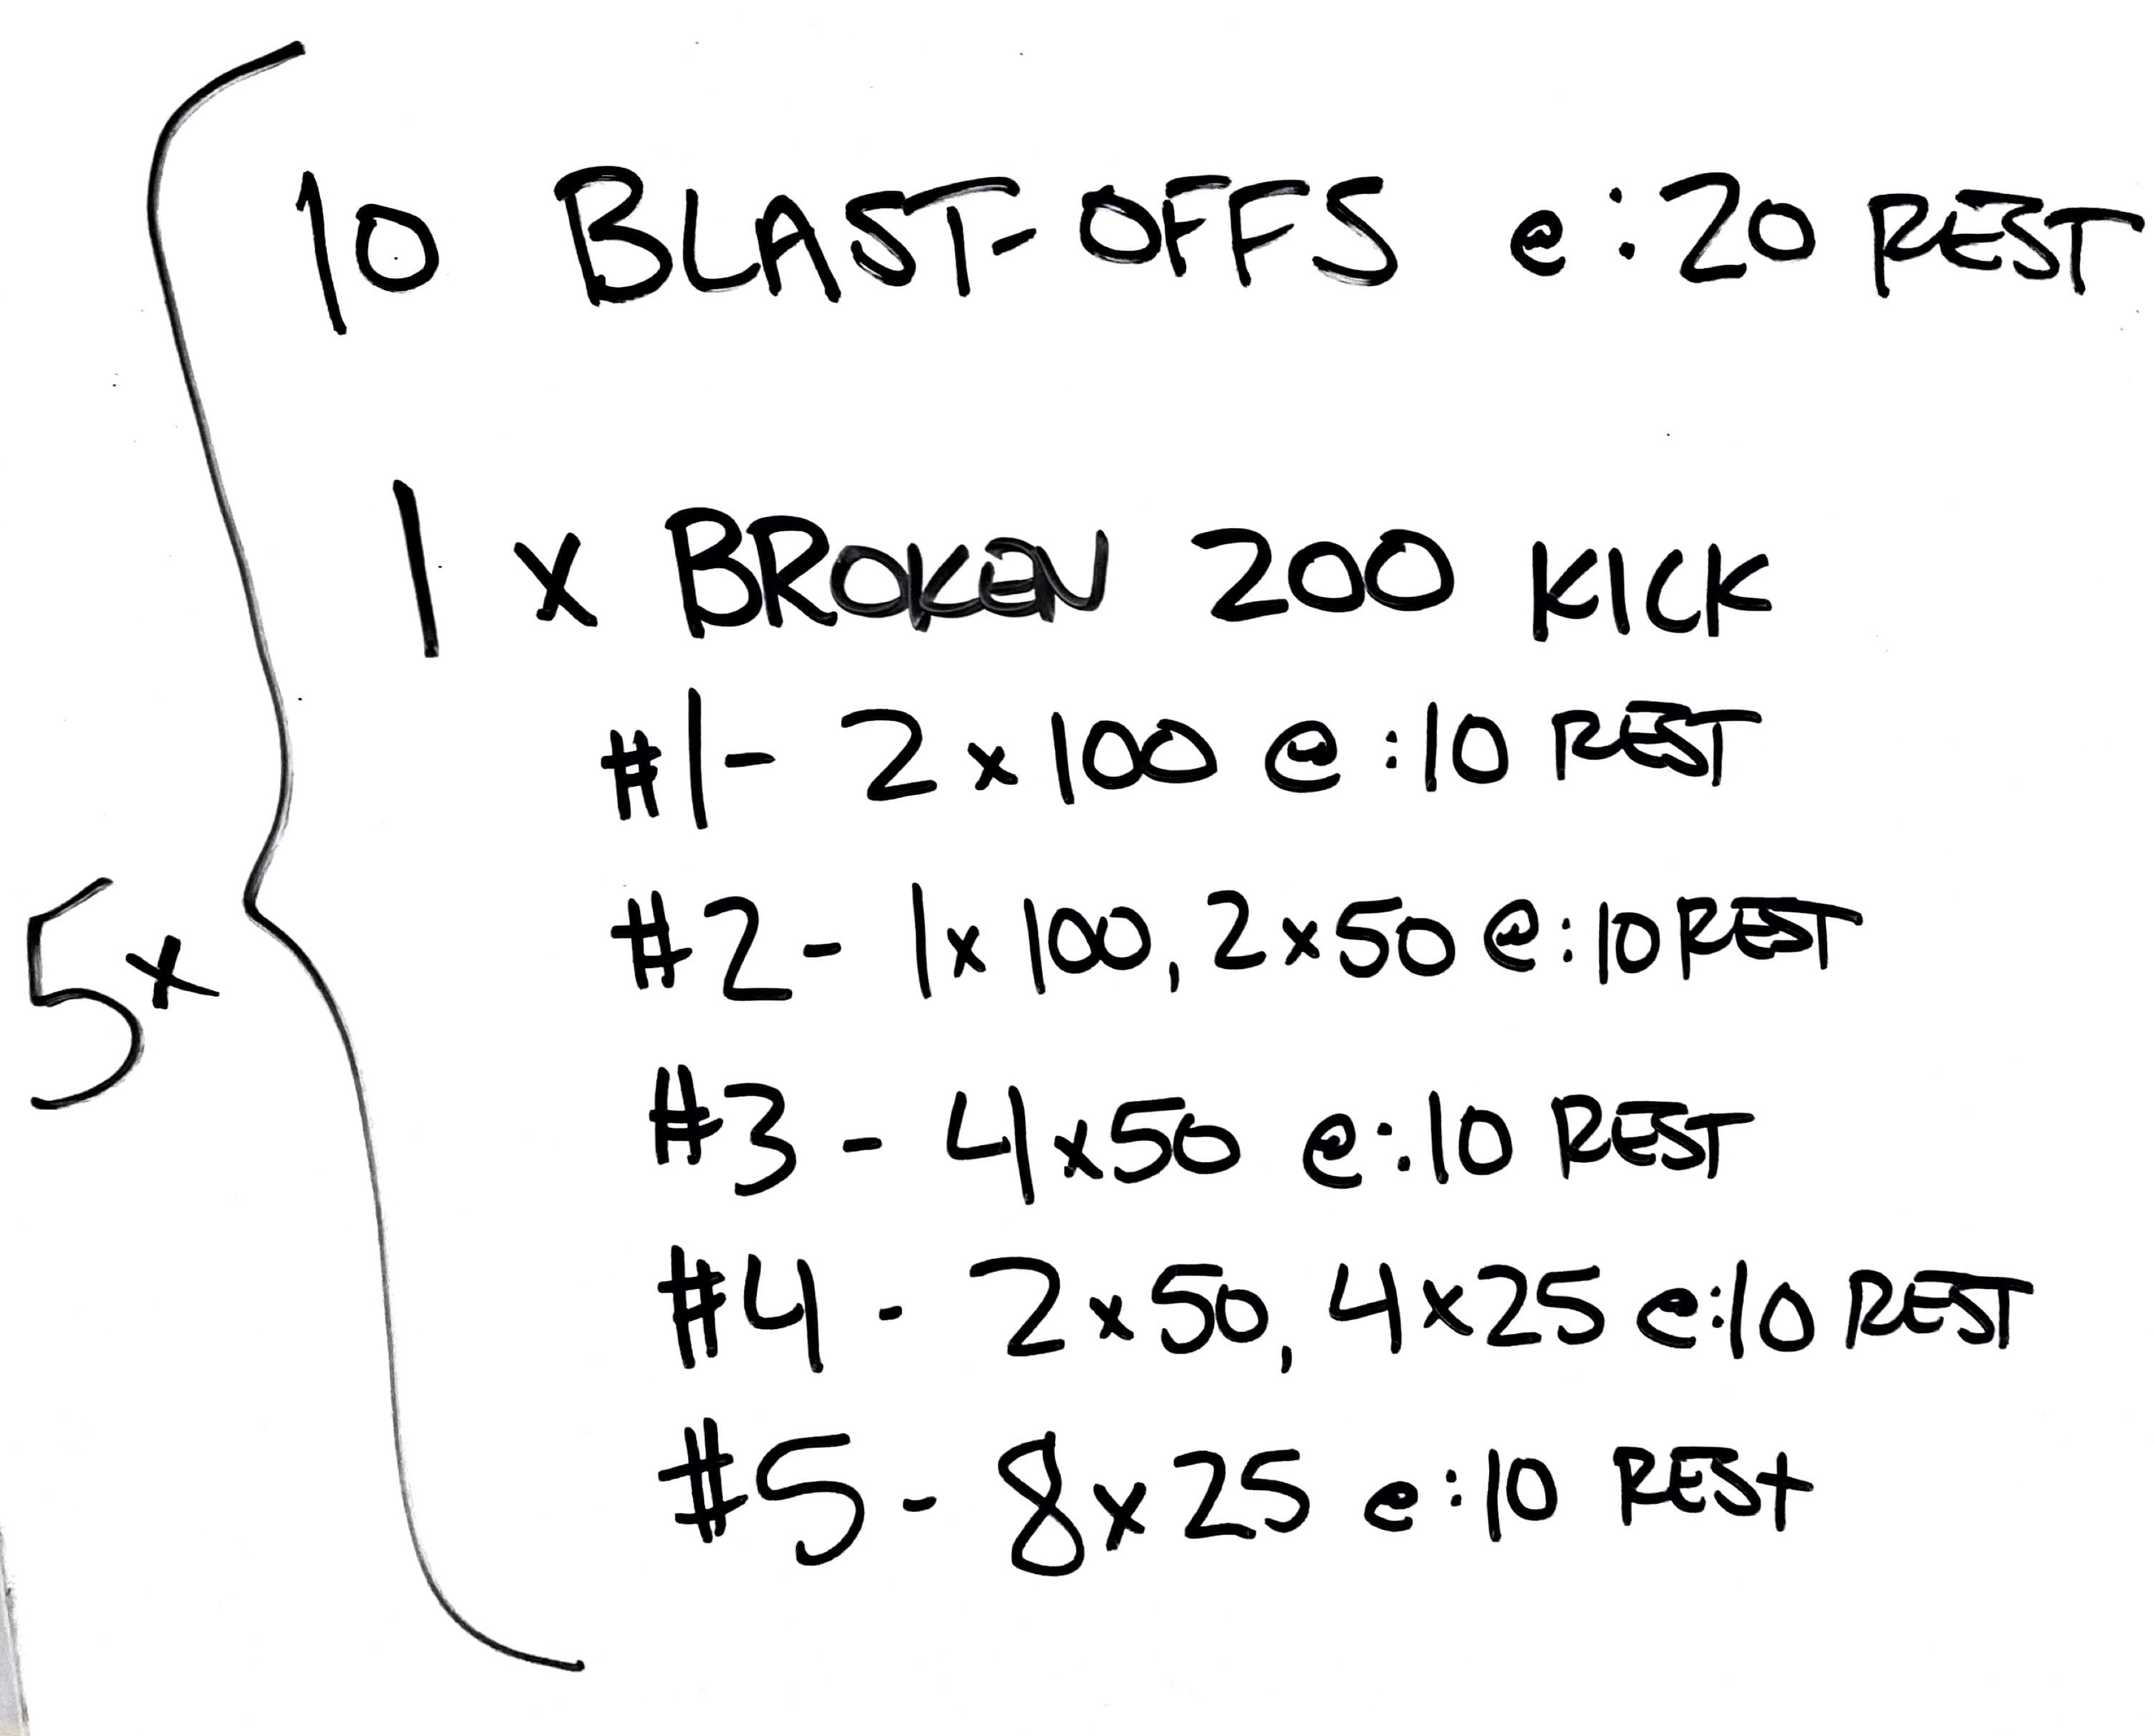 10 BLAST-OFFS @ :20 REST
1 x BROKEN 200 KICK
#1- 2 x 100 @ :10 REST
#2 - 1x 100, 2x50 @ :10 REST
5x
#3 - 4x50 @ :10 REST
#4 - 2x50, 4x25 @ :10 REST
#5 - 8x25 @ :10 REST